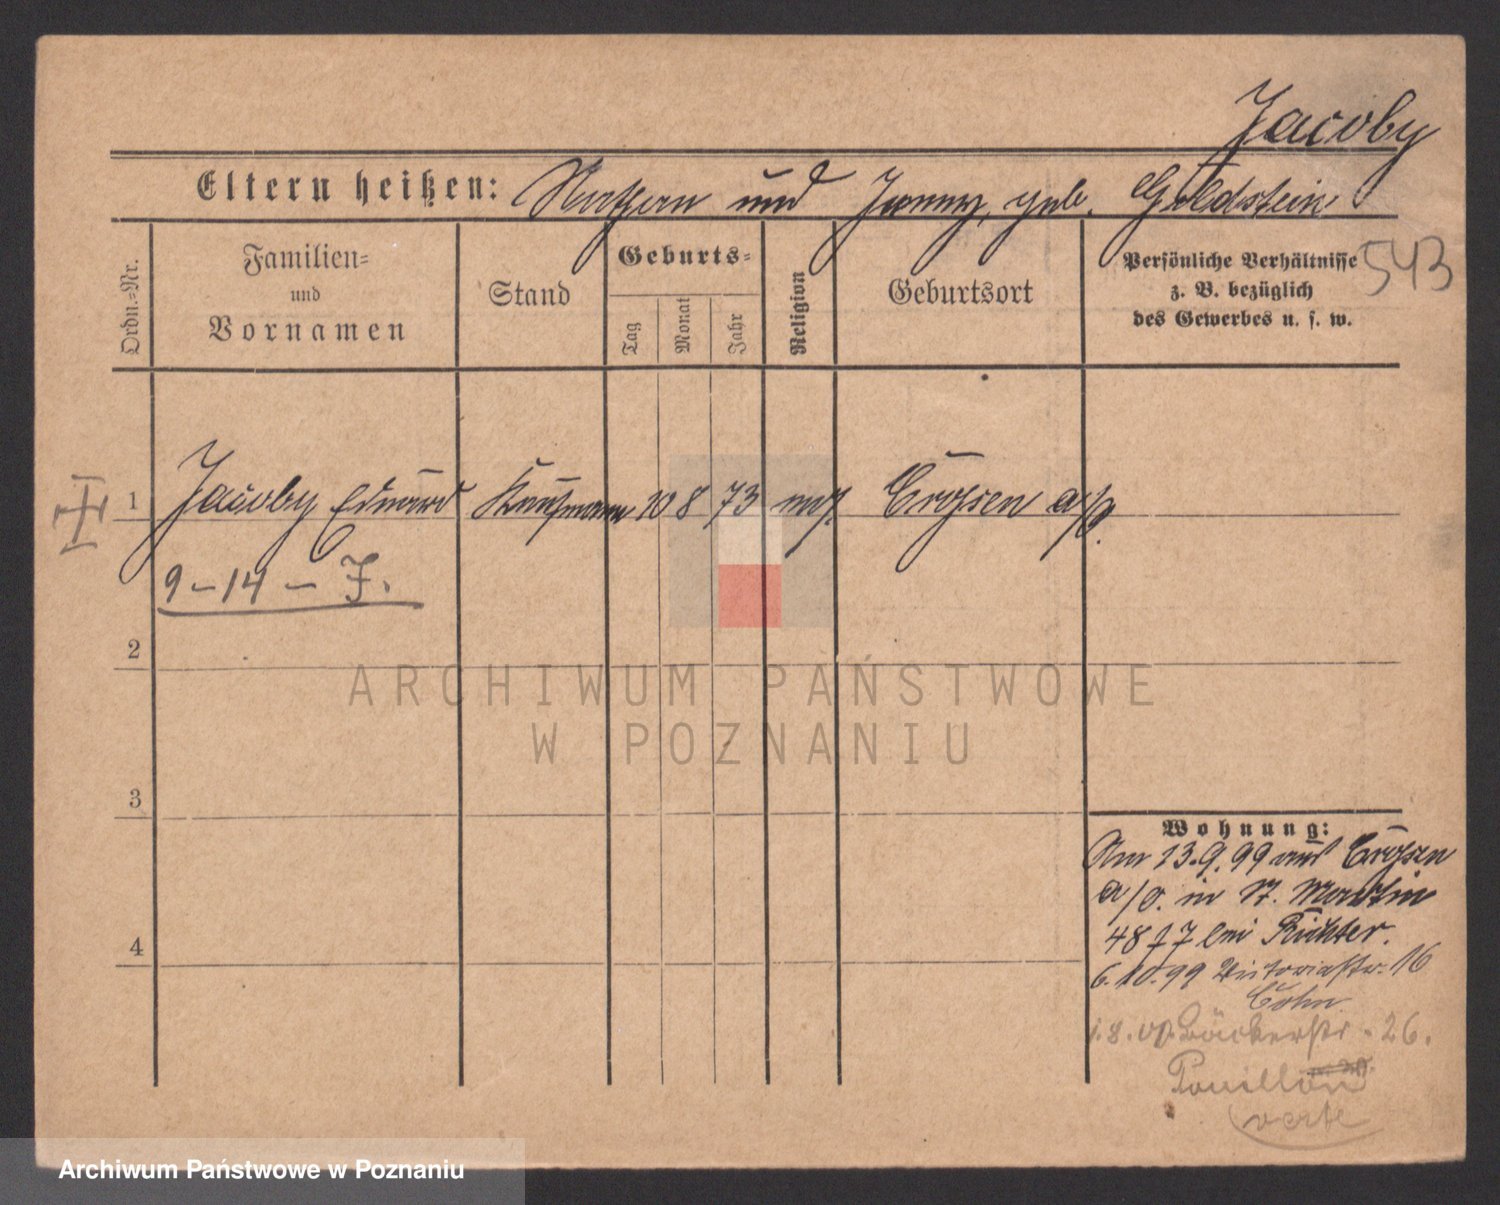 Jacoby
Eltern heißen: Nathan und Jenny, geb. Goldstein
543
Ordn.=Nr.
Familien=
und
Vornamen
Stand
Geburts=
Tag
Monat
Jahr
Religion
Geburtsort
Persönliche Verhältnisse
z. B. bezüglich
des Gewerbes u. s. w.
1 Jacoby Eduard Kaufmann 10 8 73 mos. Crossen a/O.
9-14- J.
2
3
4
Wohnung:
Am 13.9.99 aus Crossen
a/O. in St. Martin
48 bei Richter.
6.10.99 Victoriastr. 16
Cohn
Bäckerstr. 26.
verte
ARCHIWUM PAŃSTWOWE
W POZNANIU
Archiwum Państwowe w Poznaniu